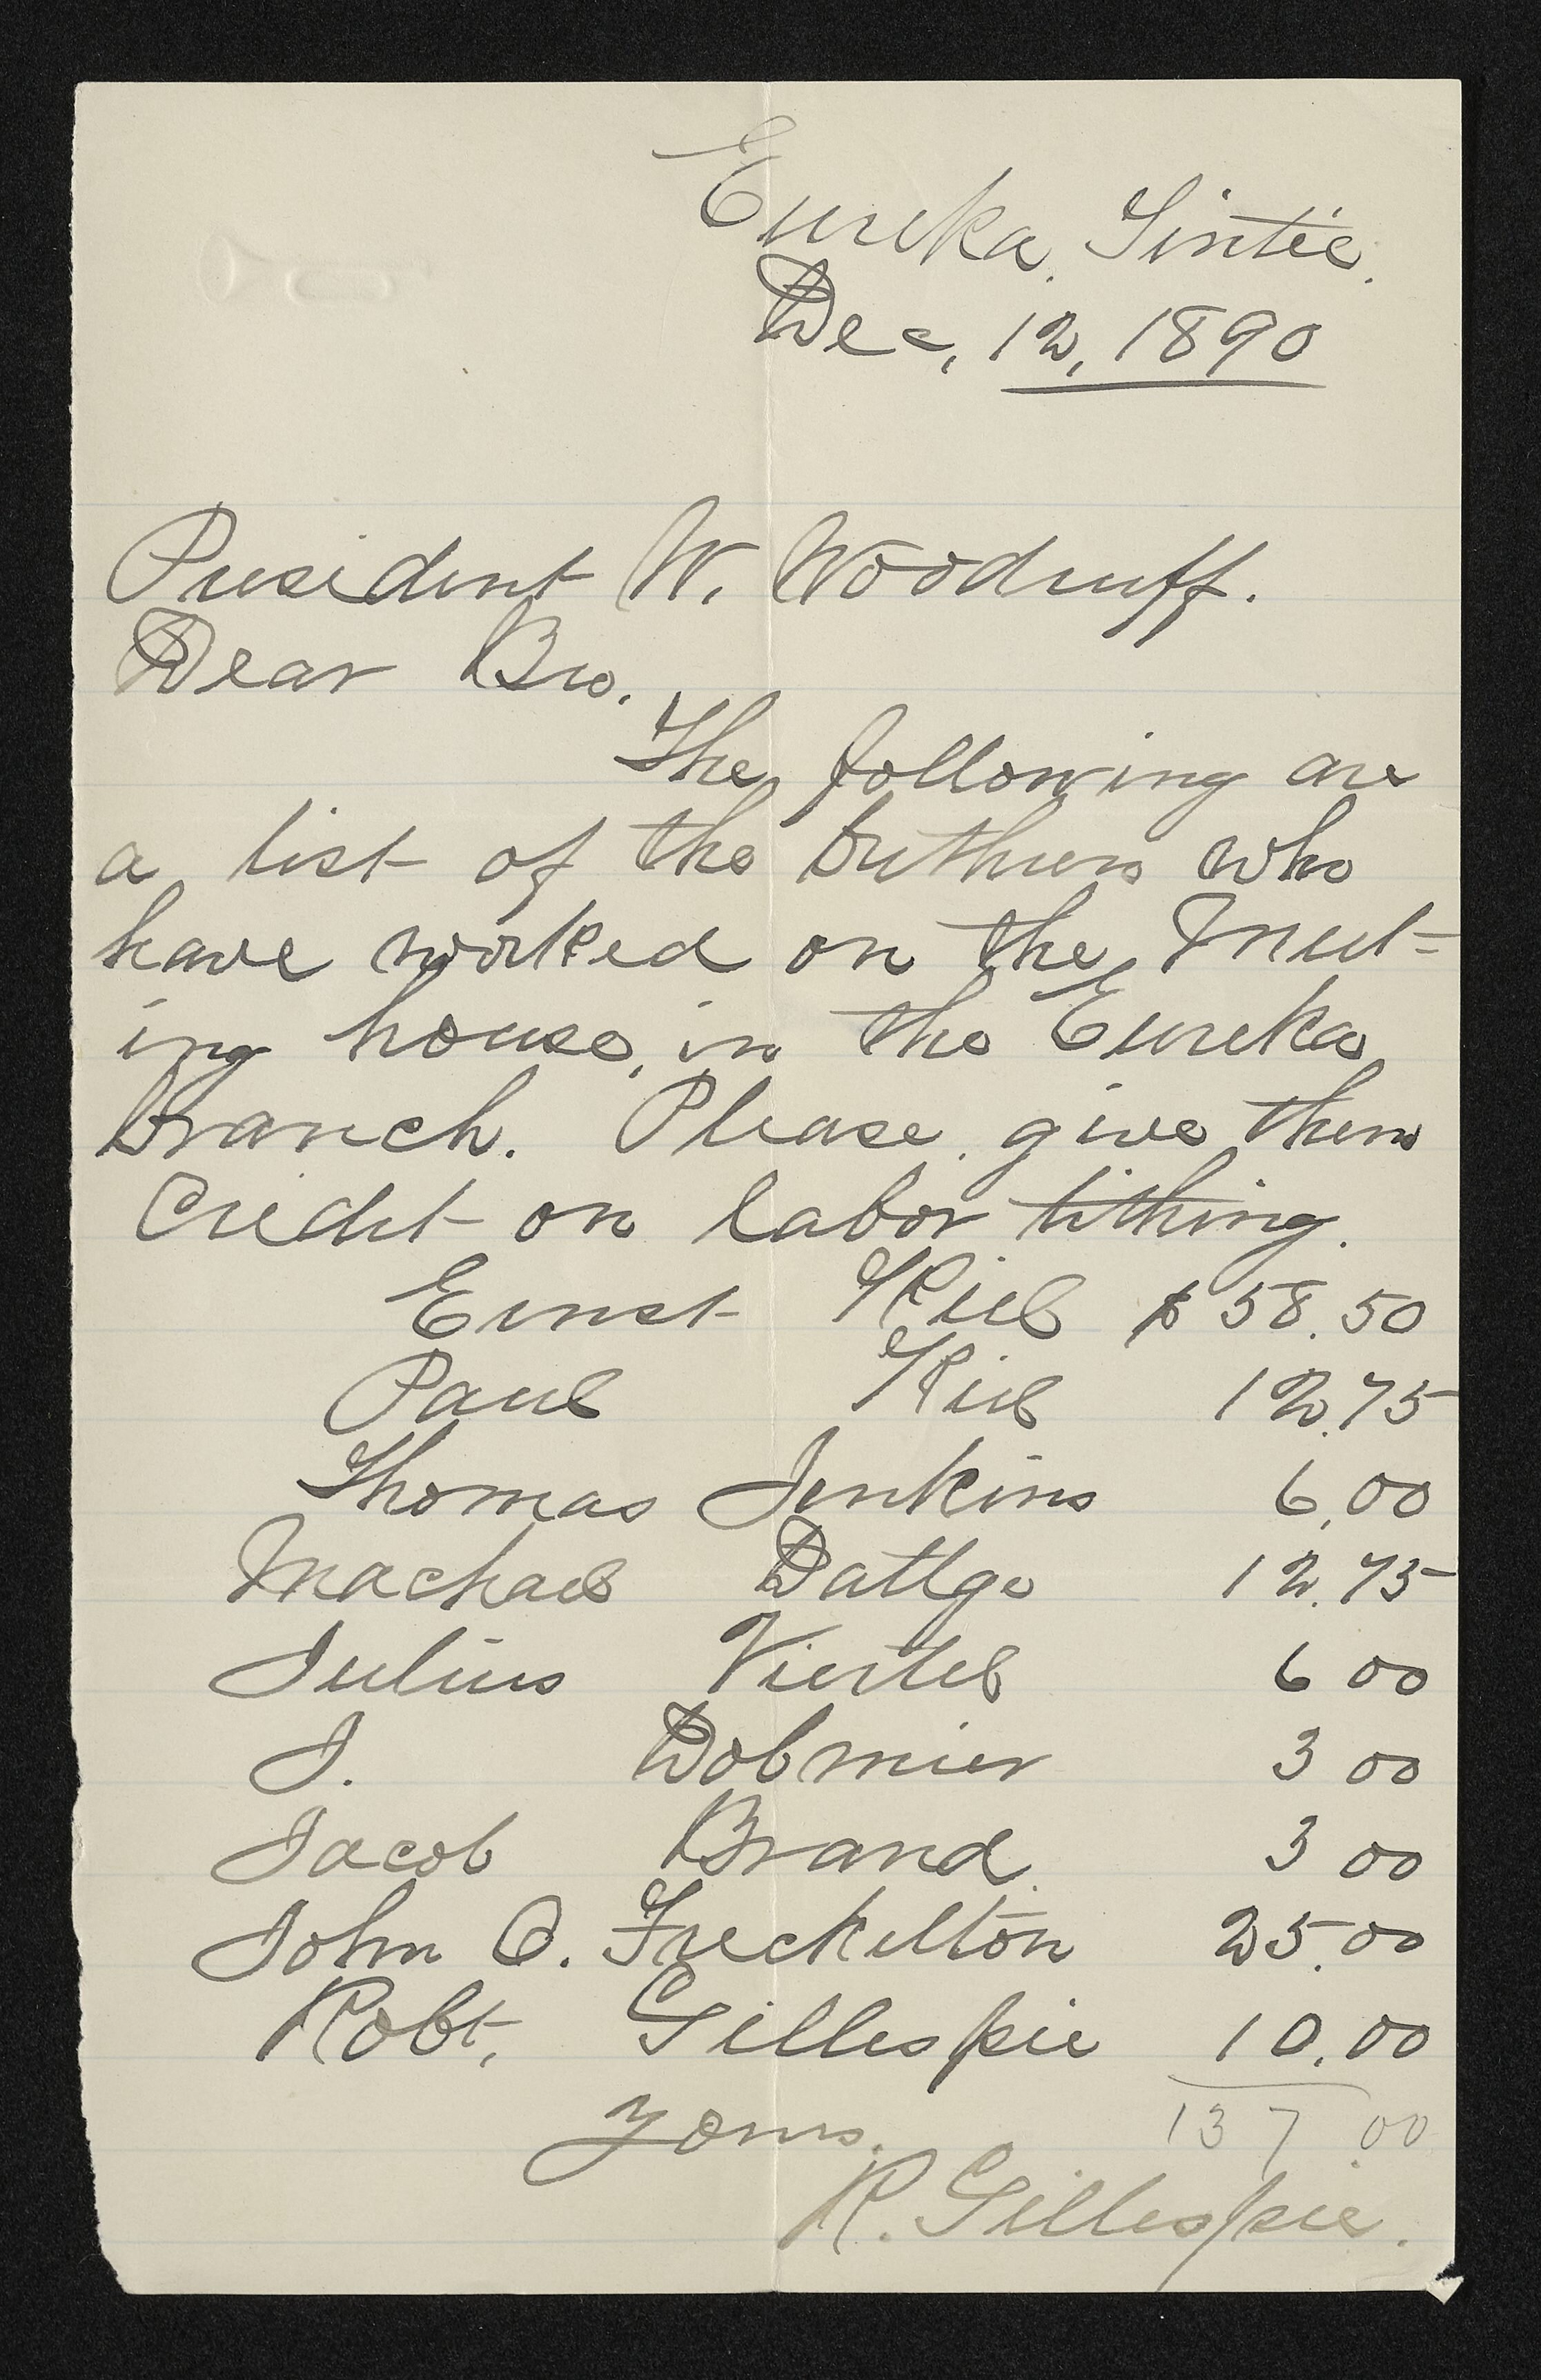 Eureka, Tintic.
Dec, 12, 1890
President W. Woodruff.
Dear Bro.
The following are
a list of the brethren who
have worked on the Meet-
ing house, in the Eureka
branch. Please give them
Credit on labor tithing.
Ernst Kiel $58.50
Paul Kiel 12.75
Thomas Jenkins 6.00
Machael Dattge 12.75
Julius Viertel 6 00
J. Dobmier 3 00
Jacob Brand. 3 00
John O. Freckelton 25.00
Robt. Gillespie 10.00
137.00
Yours.
R. Gillespie.